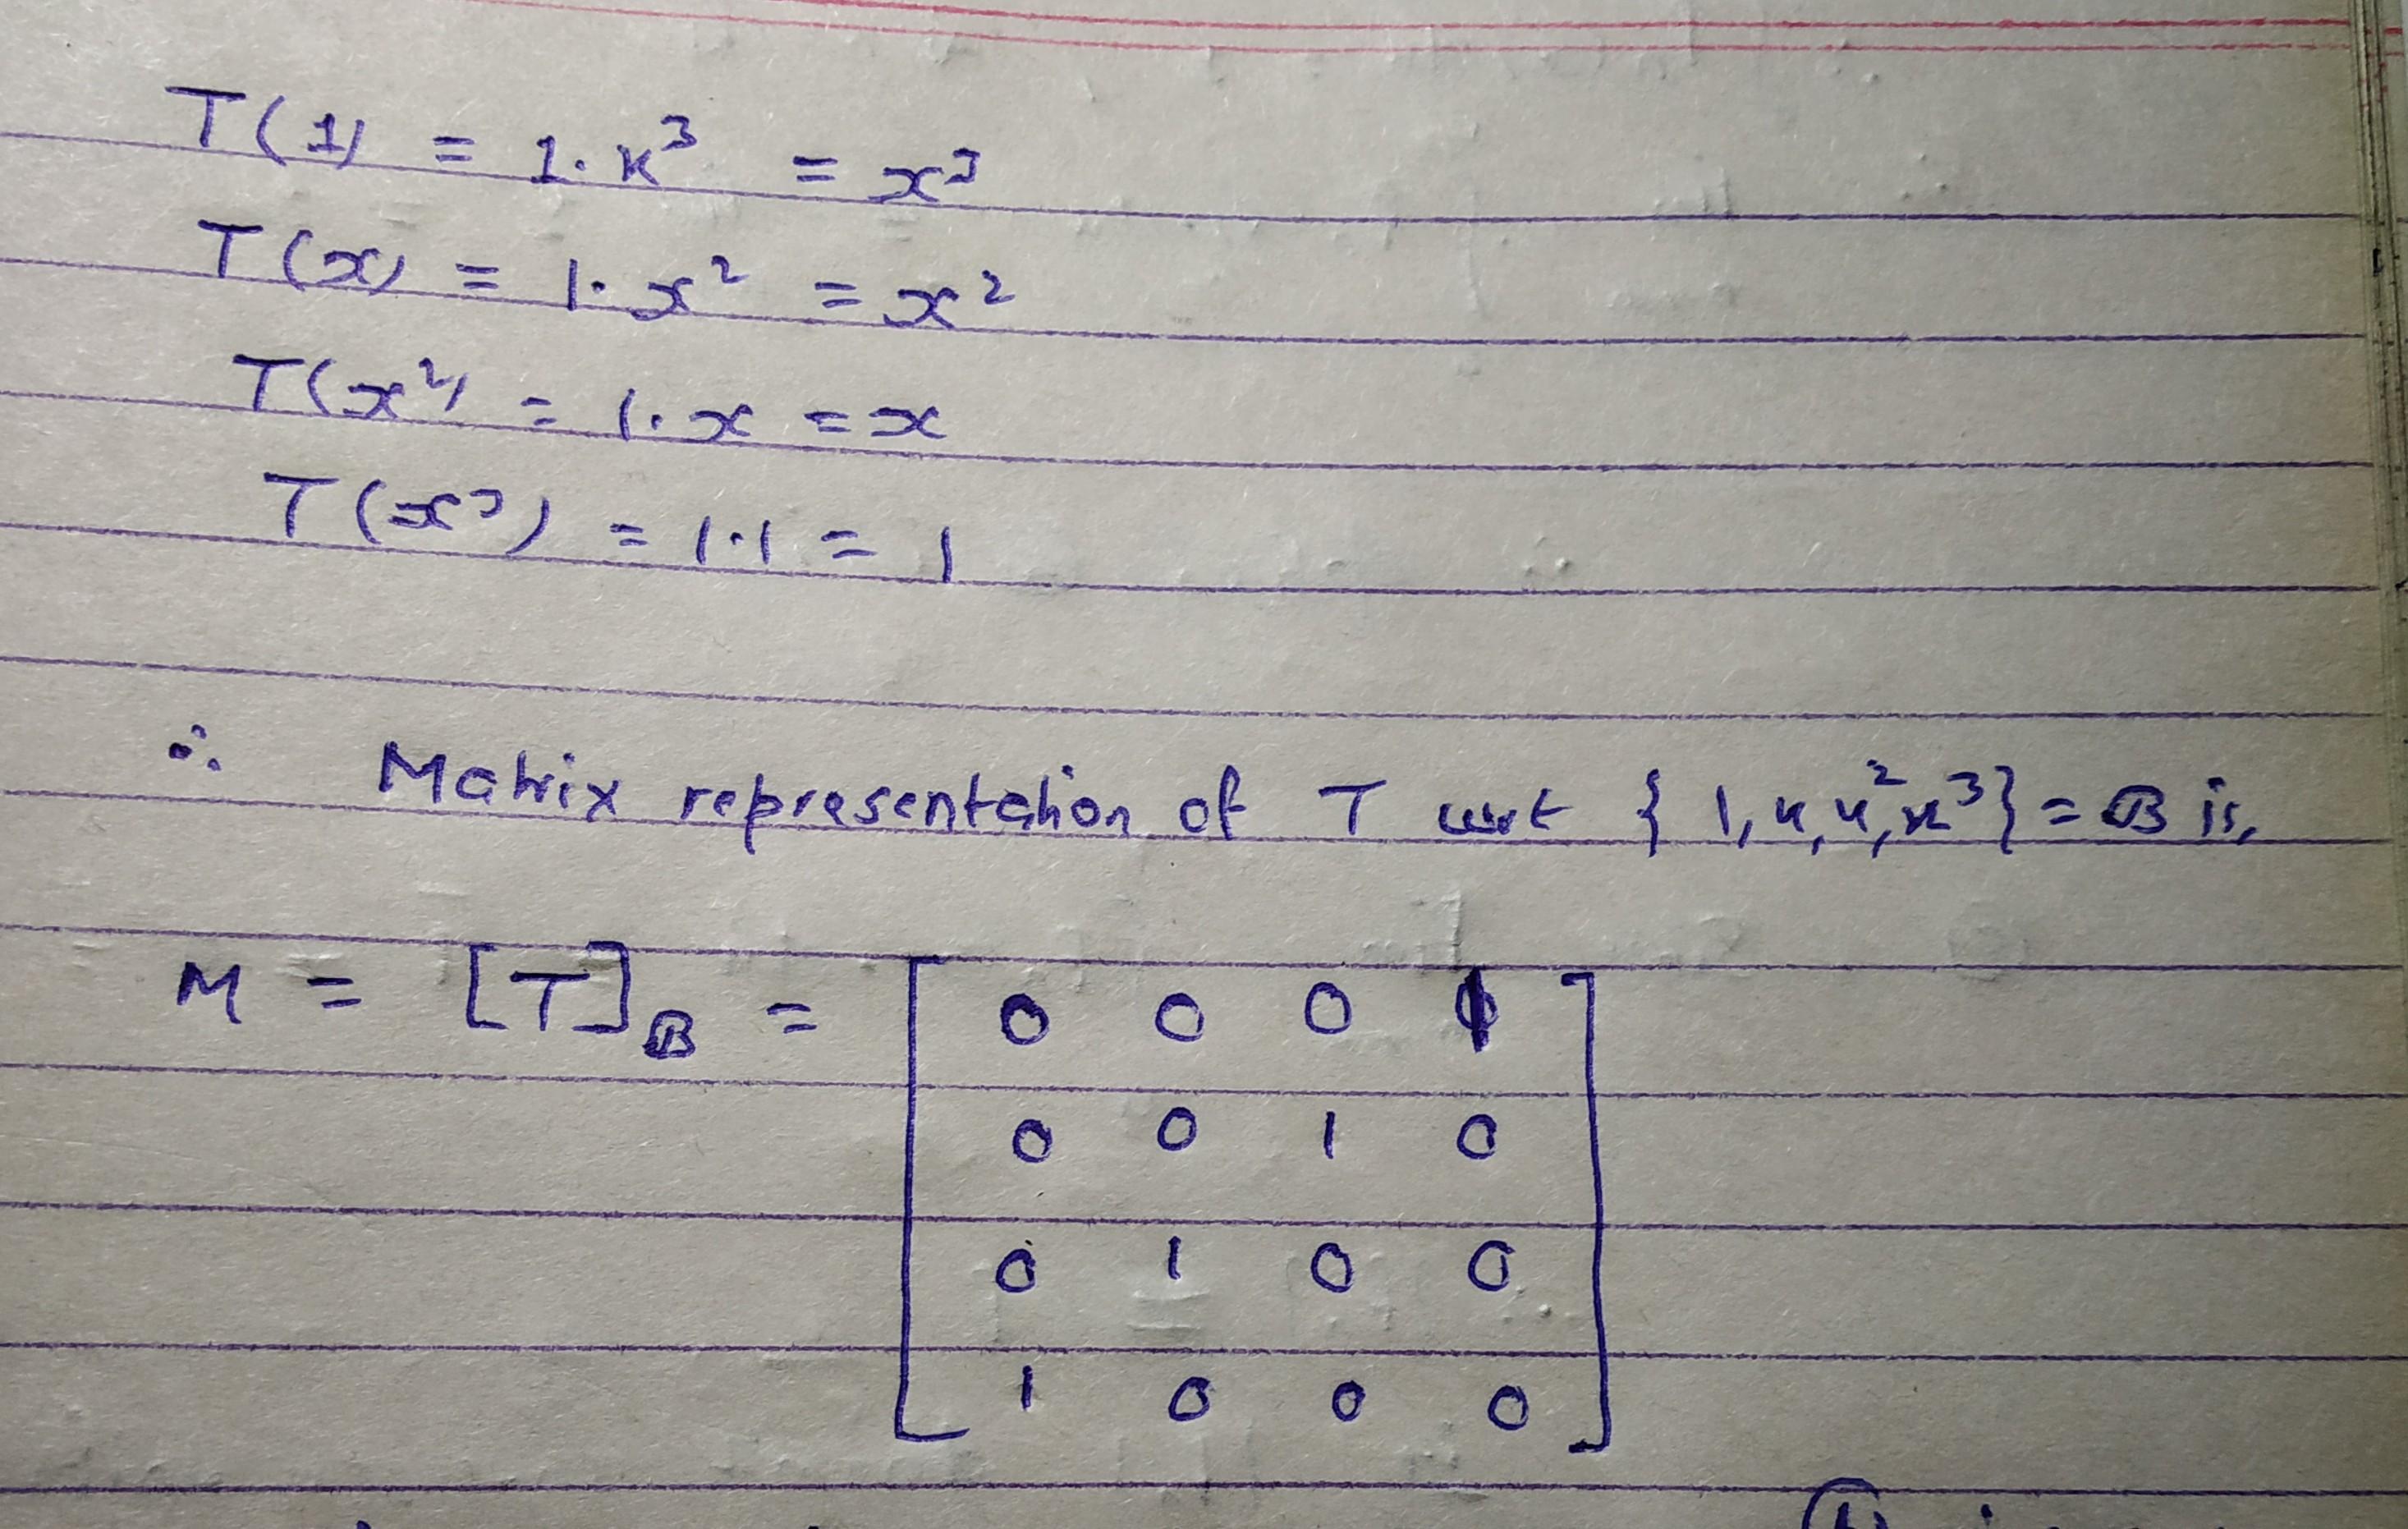 T(1) = 1·x³ = x³
T(x) = 1·x² = x²
T(x²) = 1·x = x
T(x³) = 1·1 = 1
∴ Matrix representation of T wrt {1, x, x², x³} = B is,
M = [T]_B =
0 0 0 1
0 0 1 0
0 1 0 0
1 0 0 0